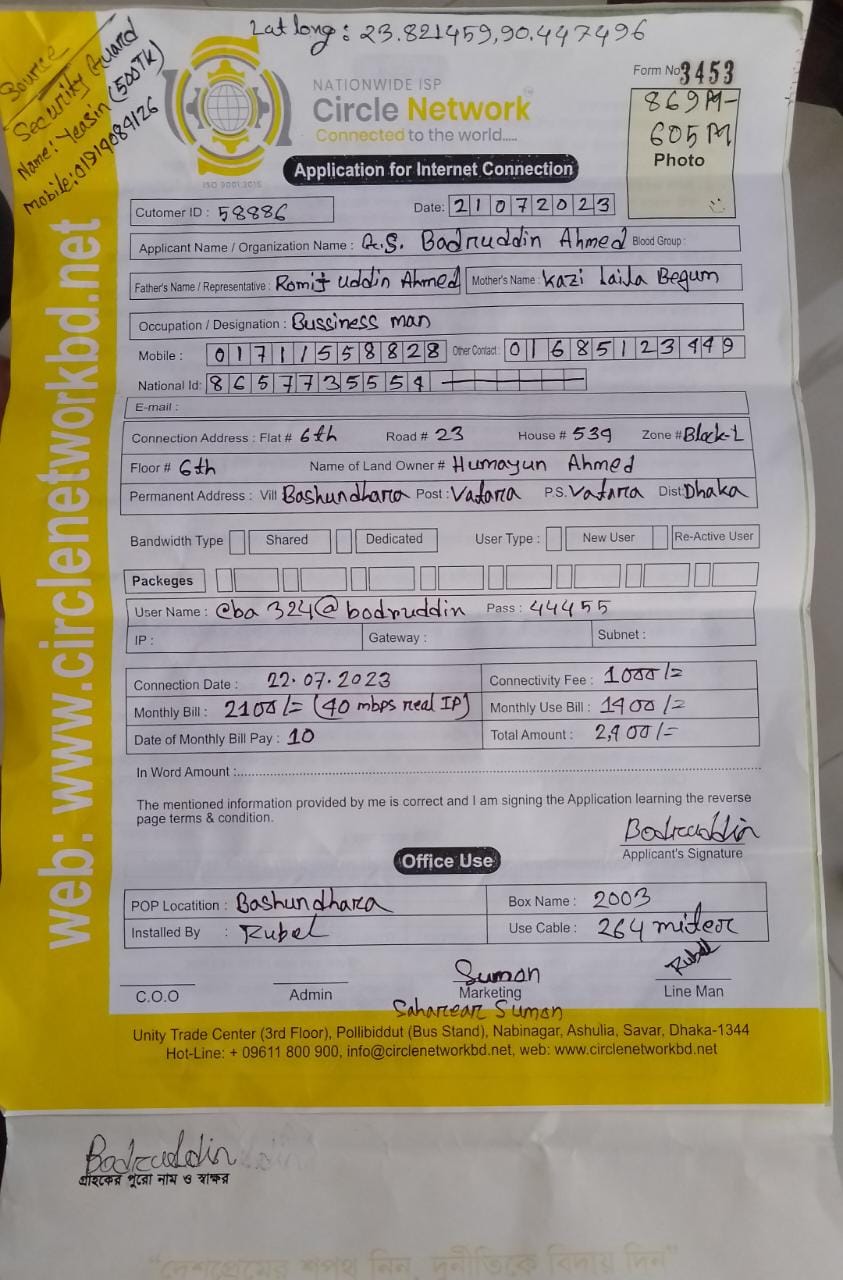 Lat long: 23.821459,90.447496
Source
Security Guard
Name: Yeasin (500Tk)
Mobile: 01914084126
Form No 3453
869M-
605M
Photo
NATIONWIDE ISP
Circle Network
Connected to the world.....
ISO 9001:2015
Application for Internet Connection
Cutomer ID : 58886
Date: 21072023
Applicant Name / Organization Name : A.S. Badruddin Ahmed Blood Group :
Father's Name / Representative : Romij uddin Ahmed Mother's Name : Kazi Laila Begum
Occupation / Designation : Bussiness man
Mobile : 01711558828 Other Contact : 01685123449
National Id: 8657735554
E-mail :
Connection Address : Flat # 6th Road # 23 House # 539 Zone # Block-L
Floor # 6th Name of Land Owner # Humayun Ahmed
Permanent Address : Vill Bashundhara Post : Vatara P.S. Vatara Dist: Dhaka
Bandwidth Type Shared Dedicated User Type : New User Re-Active User
Packeges
User Name : cba324@badruddin Pass : 44455
IP : Gateway : Subnet :
Connection Date : 22.07.2023 Connectivity Fee : 1000/=
Monthly Bill : 2100/= (40 mbps real IP) Monthly Use Bill : 1400/=
Date of Monthly Bill Pay : 10 Total Amount : 2,400/=
In Word Amount :
The mentioned information provided by me is correct and I am signing the Application learning the reverse
page terms & condition.
Badruddin
Applicant's Signature
Office Use
POP Locatition : Bashundhara Box Name : 2003
Installed By : Rubel Use Cable : 264 miter
Suman
Rubel
C.O.O Admin Marketing Line Man
Saharear Suman
Unity Trade Center (3rd Floor), Pollibiddut (Bus Stand), Nabinagar, Ashulia, Savar, Dhaka-1344
Hot-Line: + 09611 800 900, info@circlenetworkbd.net, web: www.circlenetworkbd.net
web: www.circlenetworkbd.net
Badruddin
গ্রাহকের পুরো নাম ও স্বাক্ষর
"দেশপ্রেমের শপথ নিন, দুর্নীতিকে বিদায় দিন"